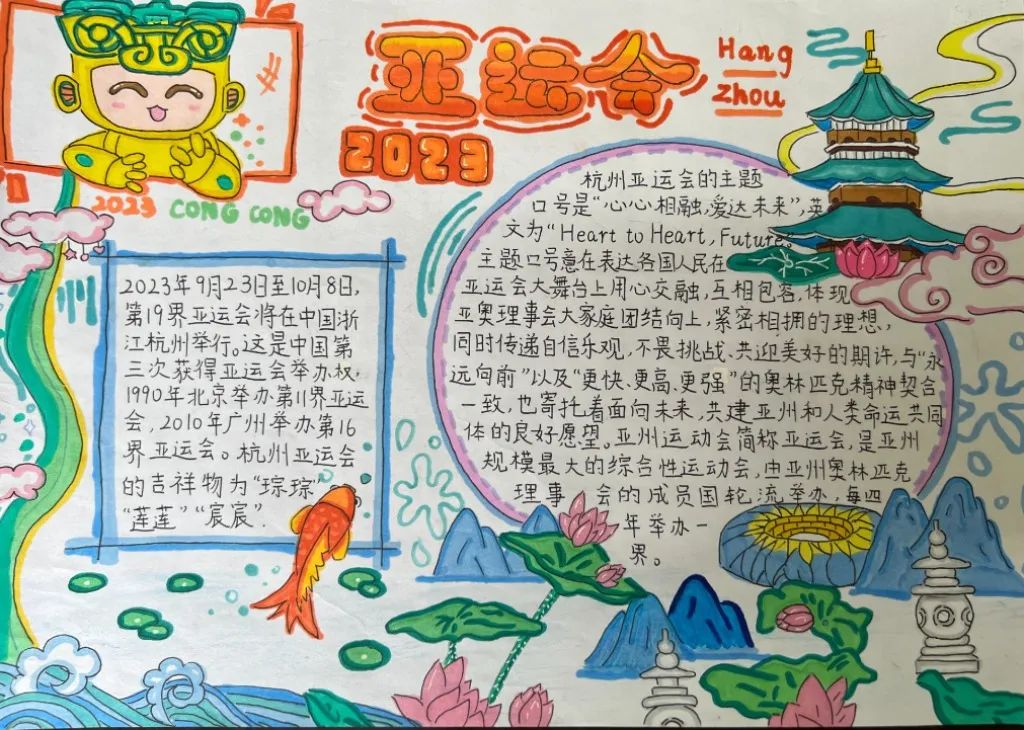 亚运会
Hang
Zhou
2023
2023 CONG CONG
2023年9月23日至10月8日,
第19界亚运会将在中国浙
江杭州举行。这是中国第
三次获得亚运会举办权.
1990年北京举办第11界亚运
会,2010年广州举办第16
界亚运会。杭州亚运会
的吉祥物为“琮琮”
“莲莲”“宸宸”.
杭州亚运会的主题
口号是“心心相融,爱达未来”,英
文为“Heart to Heart, Future。
主题口号意在表达各国人民在
亚运会大舞台上用心交融,互相包容,体现
亚奥理事会大家庭团结向上,紧密相拥的理想,
同时传递自信乐观,不畏挑战、共迎美好的期许,与“永
远向前”以及“更快、更高、更强”的奥林匹克精神契合
一致,也寄托着面向未来,共建亚州和人类命运共同
体的良好愿望。亚州运动会简称亚运会,是亚州
规模最大的综合性运动会,由亚州奥林匹克
理事会的成员国轮流举办,每四
年举办一
界。